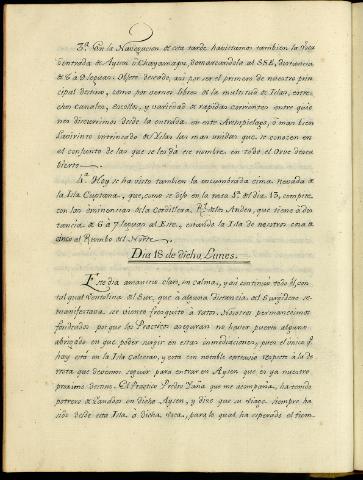 3.ª Con la Navegacion de esta tarde havistamos tambien la boca
ó entrada de Aysen ó Chayamapu, demarcandola al SSE, distancia
de 8 á 9 leguas: Objeto deseado, asi por ser el primero de nuestro prin-
cipal destino, como por vernos libres de la multitud de Islas, estre-
chos canales, escollos, y variedad de rapidas corrientes entre quie-
nes discurrimos desde la entrada en este Archipielago, ó mas bien
Lavirinto intrincado de Islas las mas unidas que se conocen en
el conjunto de las que se les dá ese nombre en todo el Orve descu-
bierto.
4.ª Hoy se ha visto tambien la encumbrada cima nevada de
la Isla Cuptana, que, como se dijo en la nota 1.ª del dia 13, compite
con las eminencias de la Cordillera R.l de los Andes, que tiene á dis-
tancia de 6 á 7 leguas al Este, estando la Isla de nosotros cua-
cinco al Rumbo del Norte.
Dia 18 de dicho Lunes.
Este dia amanecio claro, en calma, y asi continuó todo él, con
tal qual Ventolina del Sur, que á alguna distancia del Surgidero se
manifestava ser viento fresquito á ratos. Nosotros permanecimos
fondeados porque los Practicos aseguran no haver puerto alguno
abrigado en que poder surgir en estas inmediaciones, pues el unico q.e
hay está en la Isla Calceras, y está con notable extravio respeto á la de-
rrota que devemos seguir para entrar en Aysen que es ya nuestro
proximo destino. El Practico Pedro Yaña que me acompaña, ha tenido
potrero de Ganados en dicho Aysen, y dize que su viage siempre ha
sido desde esta Isla á dicha boca, para lo qual ha esperado el tiem-